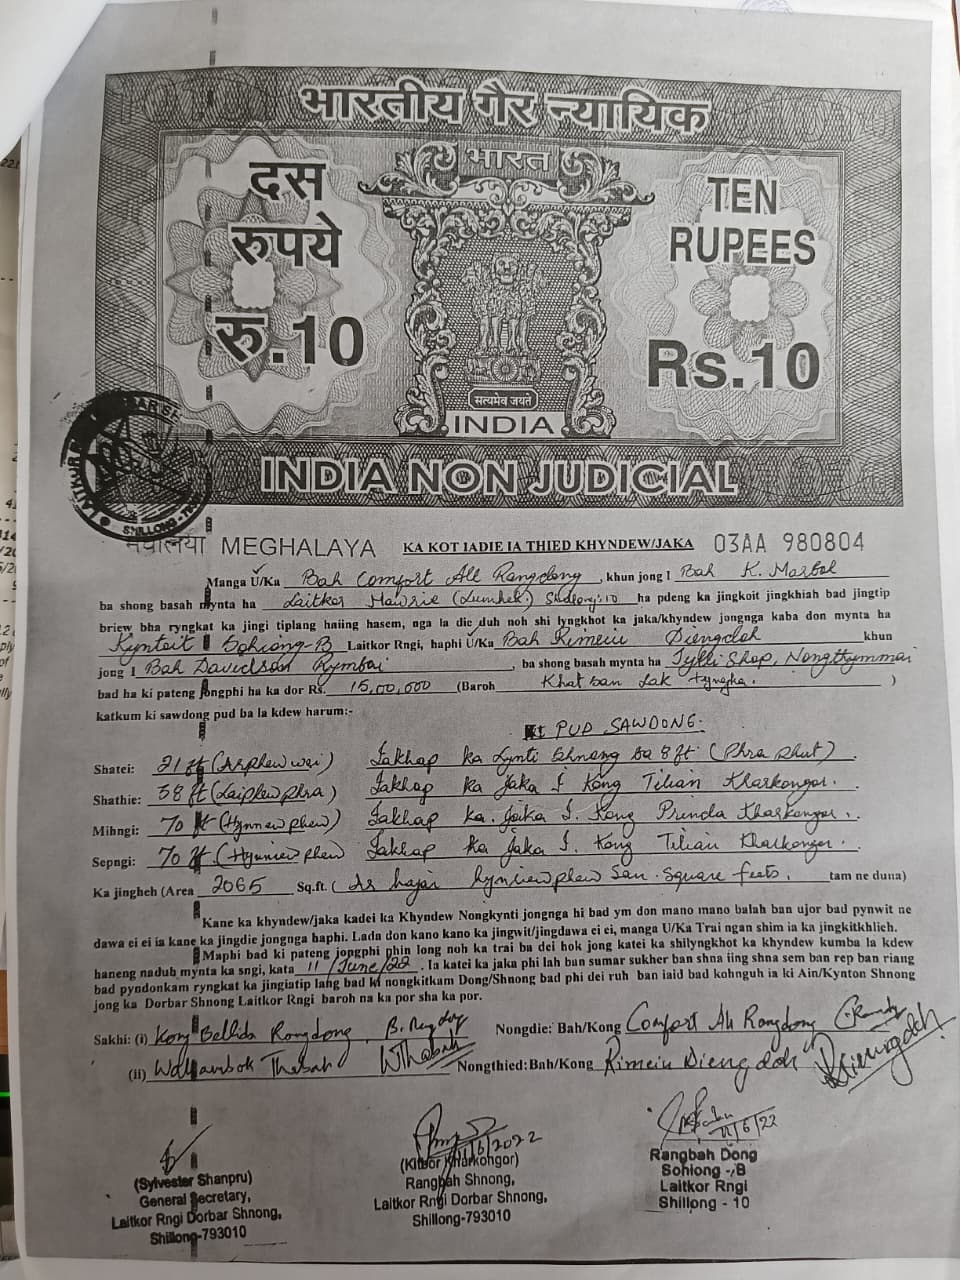 भारतीय गैर न्यायिक
भारत
दस
रुपये
रु.10
TEN
RUPEES
Rs.10
सत्यमेव जयते
INDIA
INDIA NON JUDICIAL
SHILLONG
मेघालय MEGHALAYA KA KOT IADIE IA THIED KHYNDEW/JAKA 03AA 980804
Manga U/Ka Bah Comfort All Rangdong, khun jong I Bah K. Marbol
ba shong basah mynta ha Laitkor Mawrie (Lumheh) Shillong-10 ha pdeng ka jingkoit jingkhiah bad jingtip
briew bha ryngkat ka jingi tiplang haiing hasem, nga la die duh noh shi lyngkhot ka jaka/khyndew jongnga kaba don mynta ha
Kyntoit Sohiong-B Laitkor Rngi, haphi U/Ka Bah Rimeiu Diengdoh khun
jong I Bah Davidson Rymbai, ba shong basah mynta ha Jylli Shop, Nongthymmai
bad ha ki pateng jongphi ha ka dor Rs. 15,00,000 (Baroh Khat san Lak tyngka. )
katkum ki sawdong pud ba la kdew harum:-
Ki PUD SAWDONG.
Shatei: 21 ft (Arphew wei) Jakhap ka Lynti Shnong ba 8 ft (Phra phut).
Shathie: 38 ft (Laiphew phra) Jakhap ka Jaka I Kong Tilian Kharkongor.
Mihngi: 70 ft (Hynniewphew) Jakhap ka Jaka I. Kong Prinda Kharkongor.
Sepngi: 70 ft (Hynniew phew) Jakhap ka Jaka I. Kong Tilian Kharkongor.
Ka jingheh (Area 2065 Sq.ft. (Ar hajar hynriewphew San Square feets. tam ne duna)
Kane ka khyndew/jaka kadei ka Khyndew Nongkynti jongnga hi bad ym don mano mano balah ban ujor bad pynwit ne
dawa ei ei ia kane ka jingdie jongnga haphi. Lada don kano kano ka jingwit/jingdawa ei ei, manga U/Ka Trai ngan shim ia ka jingkitkhlieh.
Maphi bad ki pateng jongphi phin long noh ka trai ba dei hok jong katei ka shilyngkhot ka khyndew kumba la kdew
haneng naduh mynta ka sngi, kata 11/June/22. Ia katei ka jaka phi lah ban sumar sukher ban shna iing shna sem ban rep ban riang
bad pyndonkam ryngkat ka jingiatip lang bad ki nongkitkam Dong/Shnong bad phi dei ruh ban iaid bad kohnguh ia ki Ain/Kynton Shnong
jong ka Dorbar Shnong Laitkor Rngi baroh na ka por sha ka por.
Sakhi: (i) Kong Bellida Rongdong B. Rongdong Nongdie: Bah/Kong Comfort All Rangdong
(ii) Wallambok Thabah WThabah Nongthied: Bah/Kong Rimeiu Diengdoh RDiengdoh
11/6/2022
11/6/22
(Sylvester Shanpru)
General Secretary,
Laitkor Rngi Dorbar Shnong,
Shillong-793010
(Kitbor Kharkongor)
Rangbah Shnong,
Laitkor Rngi Dorbar Shnong,
Shillong-793010
Rangbah Dong
Sohiong - B
Laitkor Rngi
Shillong - 10